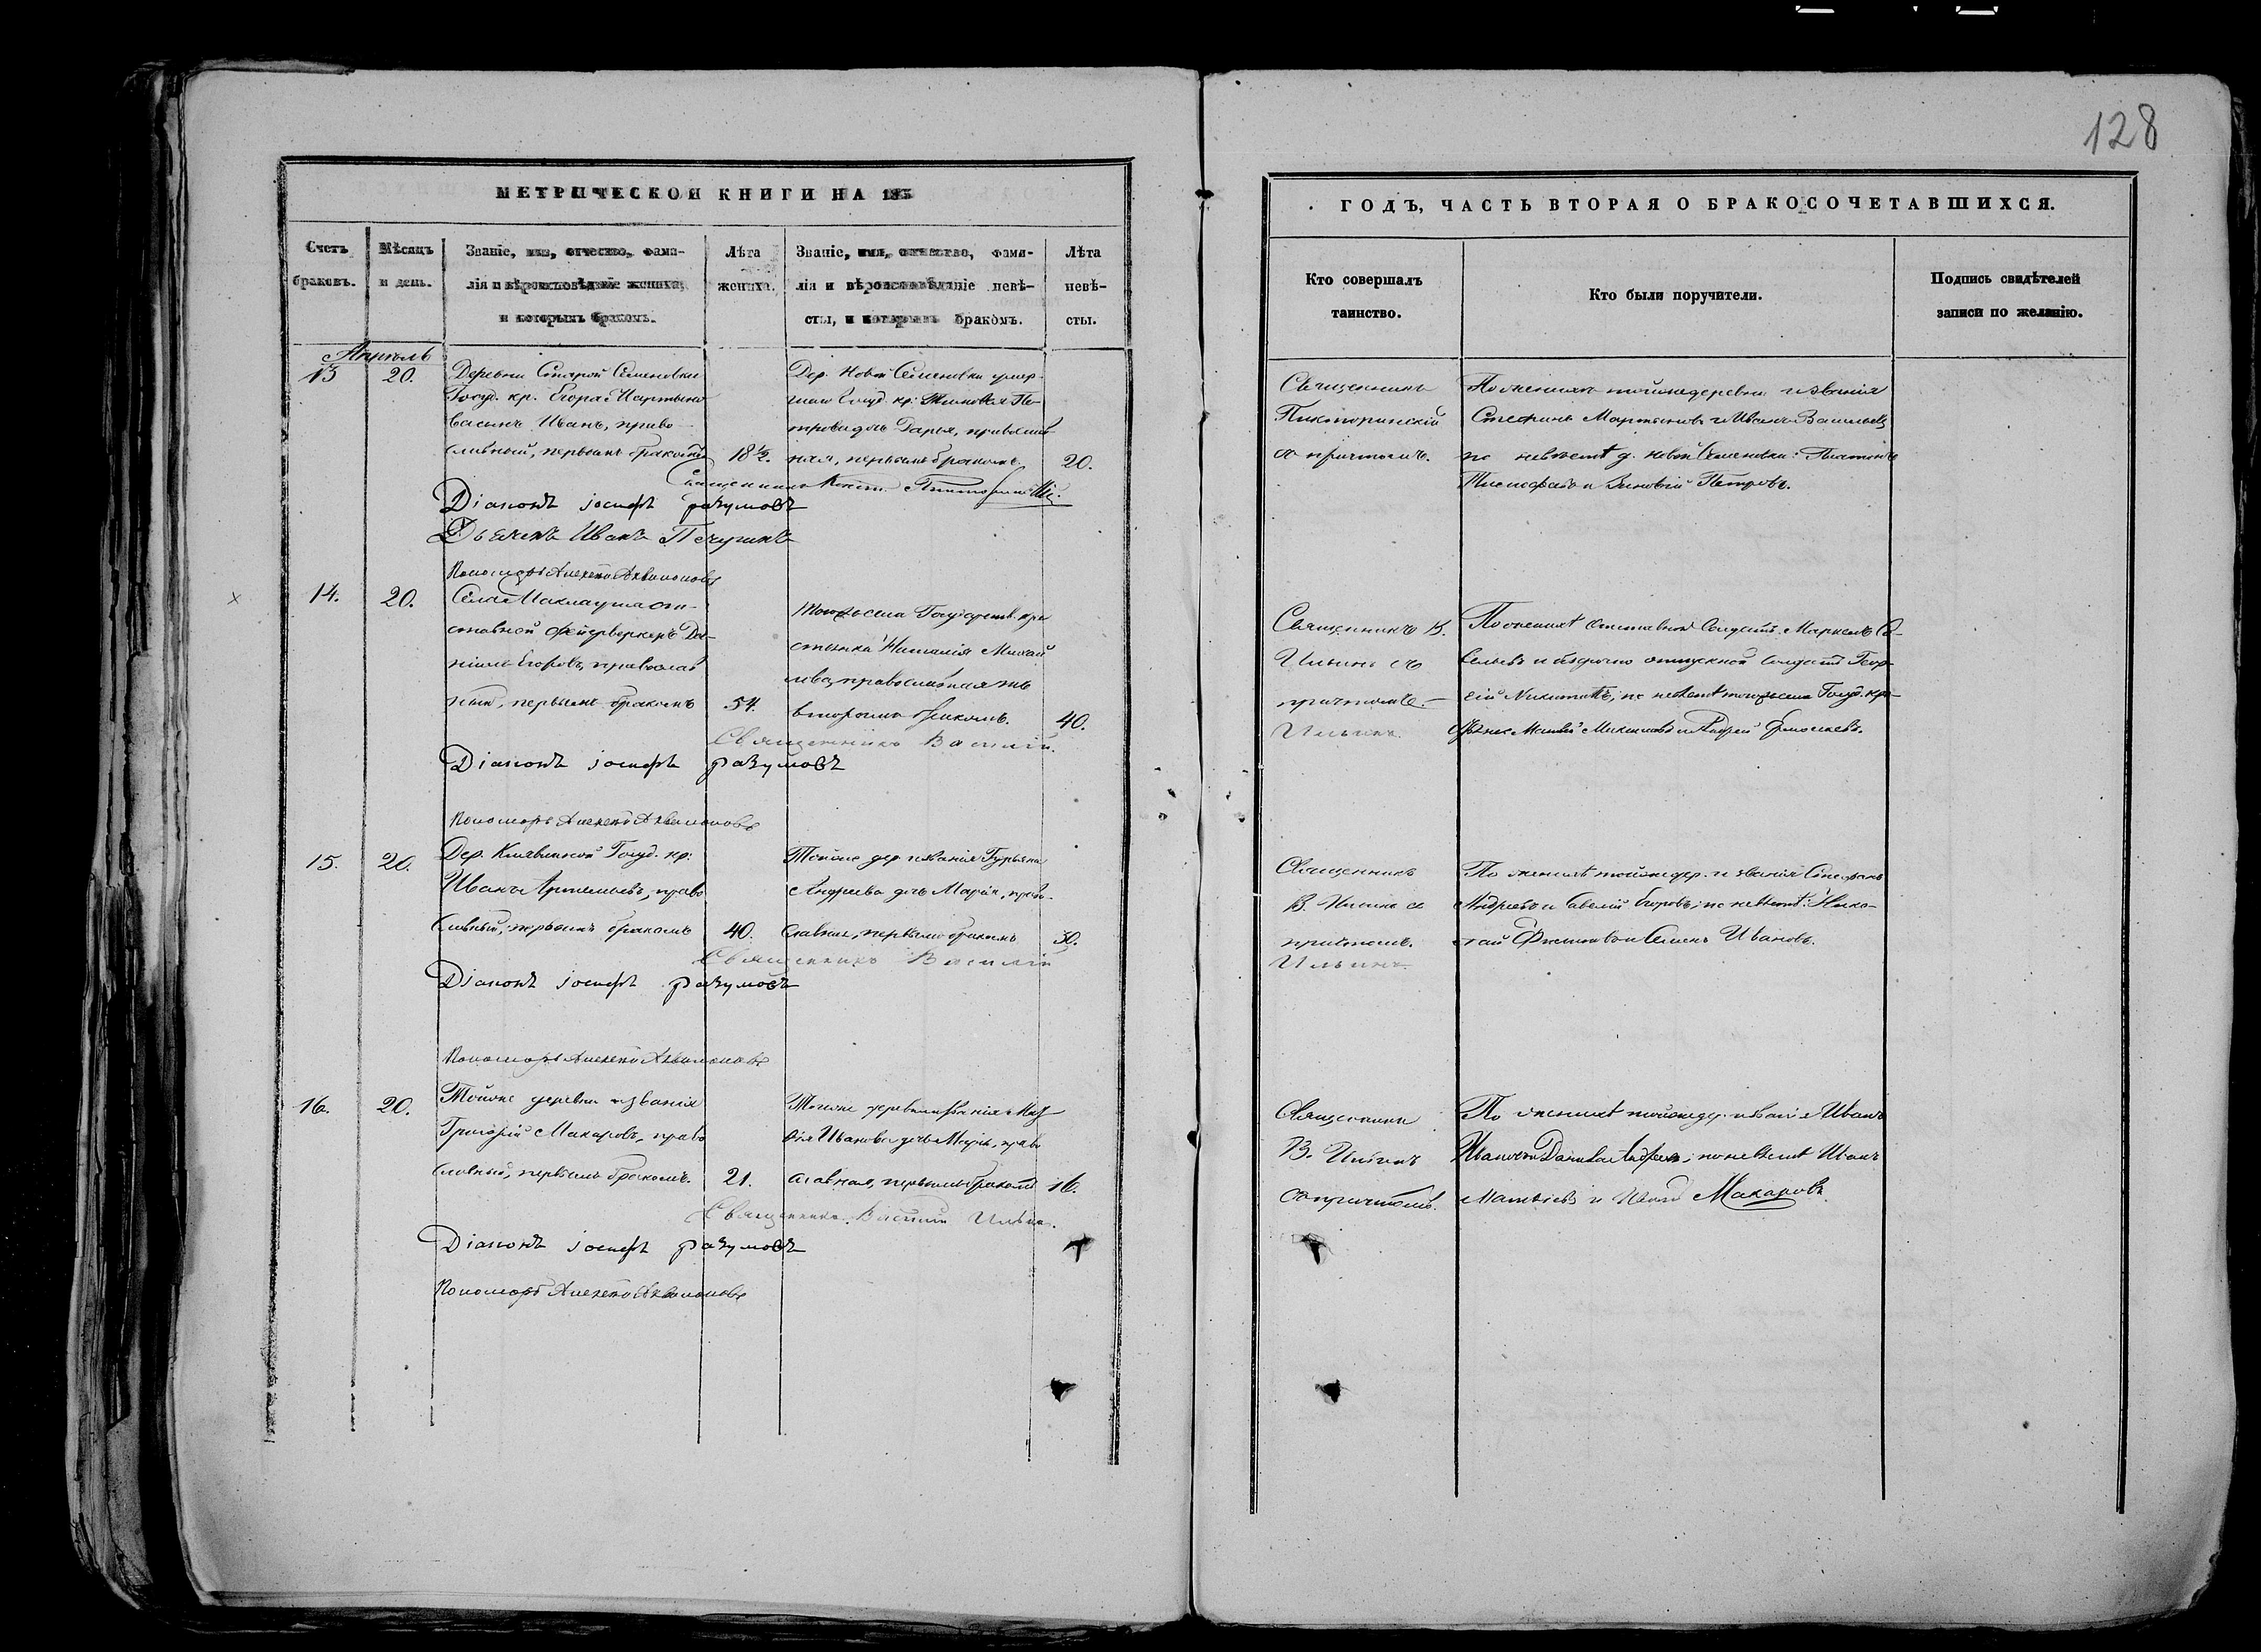 128
МЕТРИЧЕСКОЙ КНИГИ НА 18
ГОДЪ, ЧАСТЬ ВТОРАЯ О БРАКОСОЧЕТАВШИХСЯ.
Счетъ браковъ.
Мѣсяцъ и день.
Званіе, имя, отчество, фами-
лія и вѣроисповѣданіе жениха,
и которымъ бракомъ.
Лѣта
жениха.
Званіе, имя, отчество, фами-
лія и вѣроисповѣданіе невѣ-
сты, и которымъ бракомъ.
Лѣта
невѣ-
сты.
Кто совершалъ
таинство.
Кто были поручители.
Подпись свидѣтелей
записи по желанію.
Апрѣль
13
20.
Деревни Старой Семеновки
Госуд. кр. Егора Мартыно
ва сынъ Иванъ, право
славный, первымъ бракомъ
18 ½.
Дер. Новой Семеновки умер-
шаго Госуд. кр. Пе-
трова дочь Дарья, православ
ная, первымъ бракомъ.
20.
Священникъ
Діаконъ іосифъ разумовъ
Дьячекъ Иванъ Печугинъ
Пономарь Алексѣй
Священникъ
Пикторинскій
съ причтомъ.
По женихѣ тойже деревни и званія
Стефанъ Мартыновъ и Иванъ Васильевъ
по невѣстѣ д. Новой Семеновки: Платонъ
и Зиновій Петровъ.
14.
20.
Села от-
ставной фейерверкеръ Да-
ніилъ Егоровъ, православ
ный, первымъ бракомъ
54.
Тогожъ села Государств. кре
стьянка Наталія Михай
лова, православная
вторымъ бракомъ.
40.
Священникъ Василій
Діаконъ іосифъ разумовъ
Пономарь Алексѣй
Священникъ В.
Ильинъ съ
причтомъ.
Ильинъ.
По женихѣ отставной солдатъ Маркелъ Са-
вельевъ и безсрочно отпускной солдатъ Геор-
гій Никитинъ; по невѣстѣ тогожъ села Госуд. кре-
стьяне и Андрей Ермолаевъ.
15.
20.
Дер. Госуд. кр:
Иванъ Артемьевъ, право
славный, первымъ бракомъ
40.
Тойже дер. и званія Гурьяна
Андреева дочь Марія, право-
славная, первымъ бракомъ
30.
Священникъ Василій
Діаконъ іосифъ разумовъ
Пономарь Алексѣй
Священникъ
В. Ильинъ съ
причтомъ.
Ильинъ.
По женихѣ тойже дер. и званія Стефанъ
Андреевъ и Савелій Егоровъ; по невѣстѣ: Нико-
лай и Семенъ Ивановъ.
16.
20.
Тойже деревни и званія
Григорій Макаровъ, право
славный, первымъ бракомъ.
21.
Тойже деревни и званія
Иванова дочь Марія, право
славная, первымъ бракомъ
16.
Священникъ Василій Ильинъ.
Діаконъ іосифъ разумовъ
Пономарь Алексѣй
Священникъ
В. Ильинъ
съ причтомъ.
По женихѣ тойже дер. и званія Иванъ
Ивановъ и Данила Андреевъ; по невѣстѣ Иванъ
Матвѣевъ и Макаровъ.